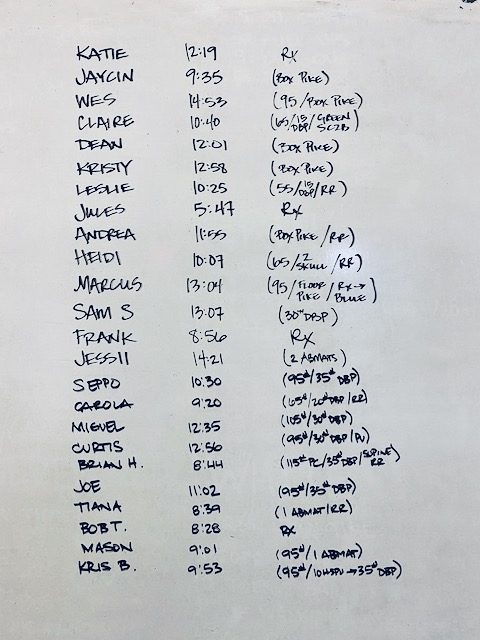 KATIE 12:19 Rx
JAYCIN 9:35 (BOX PIKE)
WES 14:53 (95/BOX PIKE)
CLAIRE 10:40 (65/15 DBP/GREEN SC2B)
DEAN 12:01 (BOX PIKE)
KRISTY 12:58 (BOX PIKE)
LESLIE 10:25 (55/15 DBP/RR)
JULES 5:47 Rx
ANDREA 11:55 (BOX PIKE/RR)
HEIDI 10:07 (65/2 SKULL/RR)
MARCUS 13:04 (95/FLOOR PIKE/RX→BLUE)
SAM S 13:07 (30# DBP)
FRANK 8:56 Rx
JESSII 14:21 (2 ABMATS)
SEPPO 10:30 (95#/35# DBP)
CAROLA 9:20 (65#/20# DBP/RR)
MIGUEL 12:35 (105#/30# DBP)
CURTIS 12:56 (95#/30# DBP/PU)
BRIAN H. 8:44 (115# PC/35# DBP/SUPINE RR)
JOE 11:02 (95#/35# DBP)
TIANA 8:39 (1 ABMAT/RR)
BOB T. 8:28 RX
MASON 9:01 (95#/1 ABMAT)
KRIS B. 9:53 (95#/10 HSPU→35# DBP)